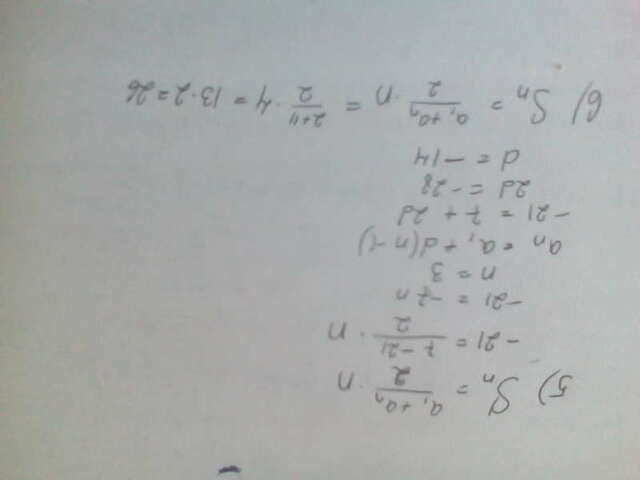 5) Sₙ = (a₁+aₙ)/2 · n
-21 = (7-21)/2 · n
-21 = -7n
n = 3
aₙ = a₁ + d(n-1)
-21 = 7 + 2d
2d = -28
d = -14
6) Sₙ = (a₁+aₙ)/2 · n = (2+11)/2 · 4 = 13·2 = 26